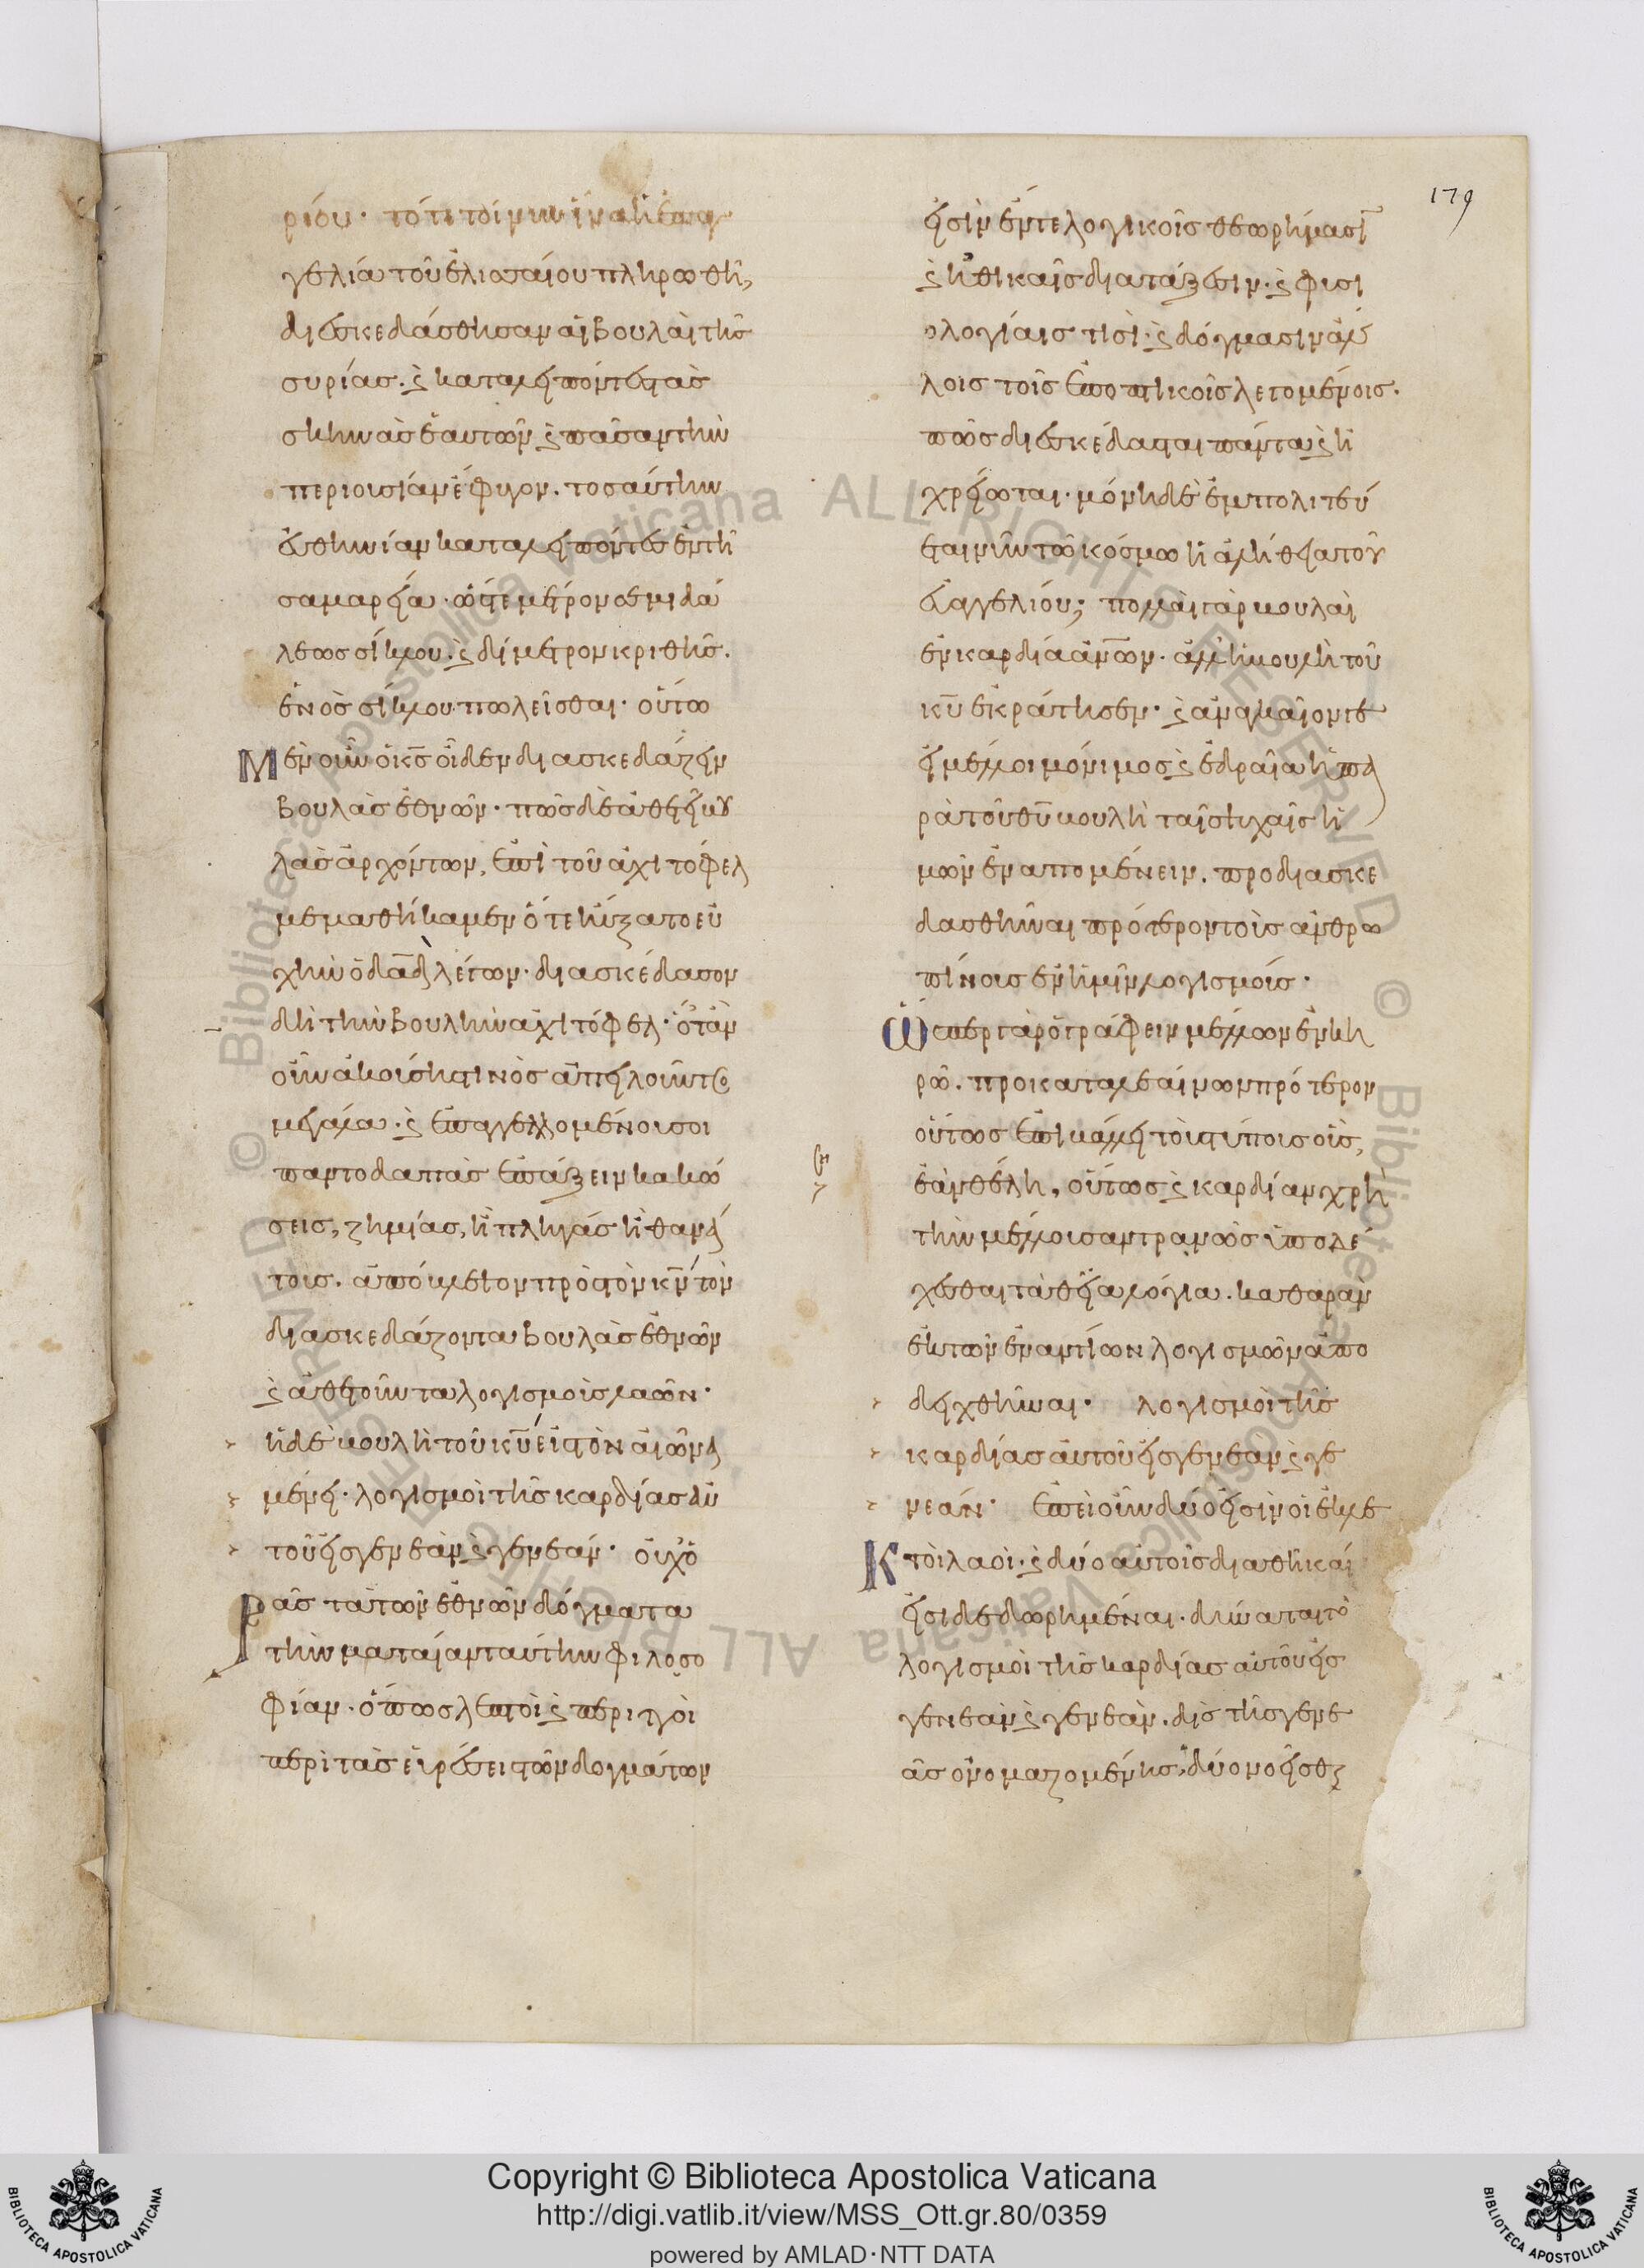 179
ρίου· τότε τοίνυν ἵνα ἡ ἐπαγ
γελία τοῦ ἐλισσαίου πληρωθῆ,
διεσκεδάσθησαν αἱ βουλαὶ τῆς
συρίας. ϗ καταλιπόντες τὰς
σκηνὰς ἑαυτῶν ϗ πᾶσαν τὴν
περιουσίαν ἔφυγον. τοσαύτην
εὐθηνίαν καταλειπόντες ἐν τῆ
σαμαρεία· ὥστε μέτρον σεμιδά
λεως σίκλου. ϗ δίμετρον κριθῆς.
ἑνὸς σίκλου πωλεῖσθαι· οὕτω
μὲν οὖν ὁ κς οἶδεν διασκεδάζειν
βουλὰς ἐθνῶν· πῶς δὲ ἀθετεῖ βου
λὰς ἀρχόντων, ἐπὶ τοῦ ἀχιτόφελ
μεμαθήκαμεν ὅτε ηὔξατο εὐ
χὴν ὁ δαδ λέγων· διασκέδασον
δὴ τὴν βουλὴν ἀχιτόφελ· ὅταν
οὖν ἀκούσης τινὸς ἀπειλοῦντος
μεγάλα· ϗ ἐπαγγελλομένου σοι
παντοδαπὰς ἐπάξειν κακώ
σεις, ζημίας, ἢ πληγάς ἢ θανά
τους. ἀπόβλεψον πρὸς τὸν κν τὸν
διασκεδάζοντα βουλὰς ἐθνῶν
ϗ ἀθετοῦντα λογισμοὺς λαῶν·
ἡ δὲ βουλὴ τοῦ κυ εἰς τὸν αἰῶνα
μένει· λογισμοὶ τῆς καρδίας αὐ
τοῦ εἰς γενεὰν ϗ γενεάν· οὐχ ὁ
ρᾶς τὰ τῶν ἐθνῶν δόγματα
τὴν ματαίαν ταύτην φιλοσο
φίαν· ὅπως λεπτοὶ ϗ περιττοὶ
περὶ τὰς εὑρέσεις τῶν δογμάτων
εἰσὶν ἔν τε λογικοῖς θεωρήμασι
ϗ ἠθικαῖς διατάξεσιν· ϗ φυσι
ολογίαις τισὶ· ϗ δόγμασιν ἄλ
λοις τοῖς ἐποπτικοῖς λεγομένοις.
πῶς διεσκέδασται πάντα ϗ ἠ
χρείωται· μόνη δὲ ἐμπολιτεύ
εται νῦν τῶ κόσμω ἡ ἀλήθεια τοῦ
εὐαγγελίου; πολλαὶ γὰρ βουλαὶ
ἐν καρδία ἀνων· ἀλλ' ἡ βουλὴ τοῦ
κυ ἐκράτησεν· ϗ ἀναγκαῖόν γε
εἰ μέλλοι μόνιμος ϗ ἑδραῖα ἡ πα
ρὰ τοῦ θυ βουλὴ ταῖς ψυχαῖς ἡ
μῶν ἐναπομένειν. προδιασκε
δασθῆναι πρότερον τοὺς ἀνθρω
πίνους ἐν ἡμῖν λογισμούς·
ὥσπερ γὰρ ὁ γράφειν μέλλων ἐν κη
ρῶ. προκαταλεαίνων πρότερον
οὕτως ἐπιβάλλει τοὺς τύπους οὓς,
ἐὰν θέλη, οὕτως ϗ καρδίαν χρὴ
τὴν μέλλουσαν τρανῶς ὑποδέ
χεσθαι τὰ θεῖα λόγια. καθαρὰν
ἐκ τῶν ἐναντίων λογισμῶν ἀπο
δειχθῆναι· λογισμοὶ τῆς
καρδίας αὐτοῦ εἰς γενεὰν ϗ γε
νεάν· ἐπεὶ οὖν δύο εἰσὶν οἱ ἐκλε
κτοὶ λαοί· ϗ δύο αὐτοῖς διαθῆκαι
εἰσι δεδωρημέναι· διὰ τοῦτο
λογισμοὶ τῆς καρδίας αὐτοῦ εἰς
γενεὰν ϗ γενεάν. δὶς τῆς γενε
ᾶς ὀνομαζομένης, δύο νοεῖσθαι
Copyright © Biblioteca Apostolica Vaticana
http://digi.vatlib.it/view/MSS_Ott.gr.80/0359
powered by AMLAD·NTT DATA
BIBLIOTECA APOSTOLICA VATICANA
BIBLIOTECA APOSTOLICA VATICANA